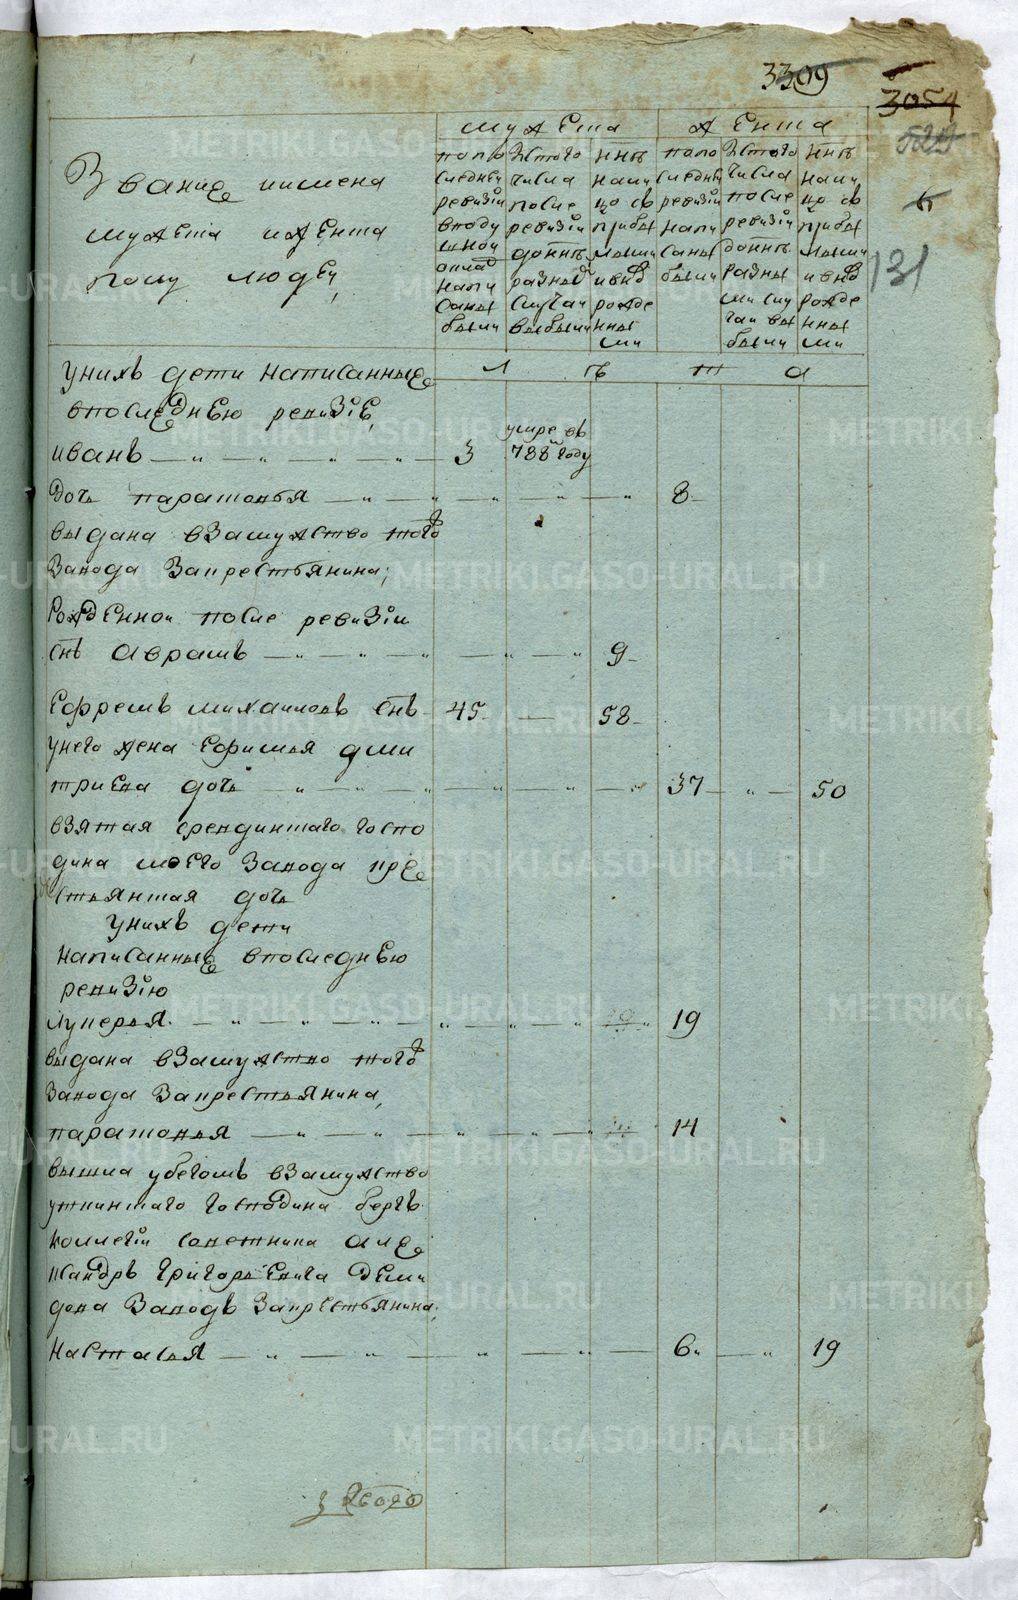 3309
3054
131
мужеска
женска
Звание имена
мужеска иженска
полу людей,
попо следнеи ревизіи вподушной оклад написаны были
Изтого числа после ревизіи донынѣ разными случаи выбыли
нынѣ налицо св прибылыми ивновь рожденными
попо следнеи ревизіи написаны были
Изтого числа после ревизіи донынѣ разными случаи выбыли
нынѣ налицо св прибылыми ивновь рожденными
лѣта
унихъ дети написанные
впоследнею ревизіе,
иванъ 3 умре въ 788м году
дочь парасковья 8
выдана взамужство того
завода закрестьянина;
Рожденной после ревизіи
снъ аврамъ 9
Ефремъ михаиловъ снъ 45 58
унего жена Ефимья дми
триева дочь 37 50
взятая госпо
дина моего завода кре
стьянская дочь
унихъ дети
написанные впоследнею
ревизію
лукерья 19
выдана взамужство того
завода закрестьянина,
парасковья 14
вышла убегомъ взамужство
уткинскаго господина бергъ
коллегіи советника але
ксандръ григорьевича деми
дова заводъ закрестьянина;
настасья 6 19